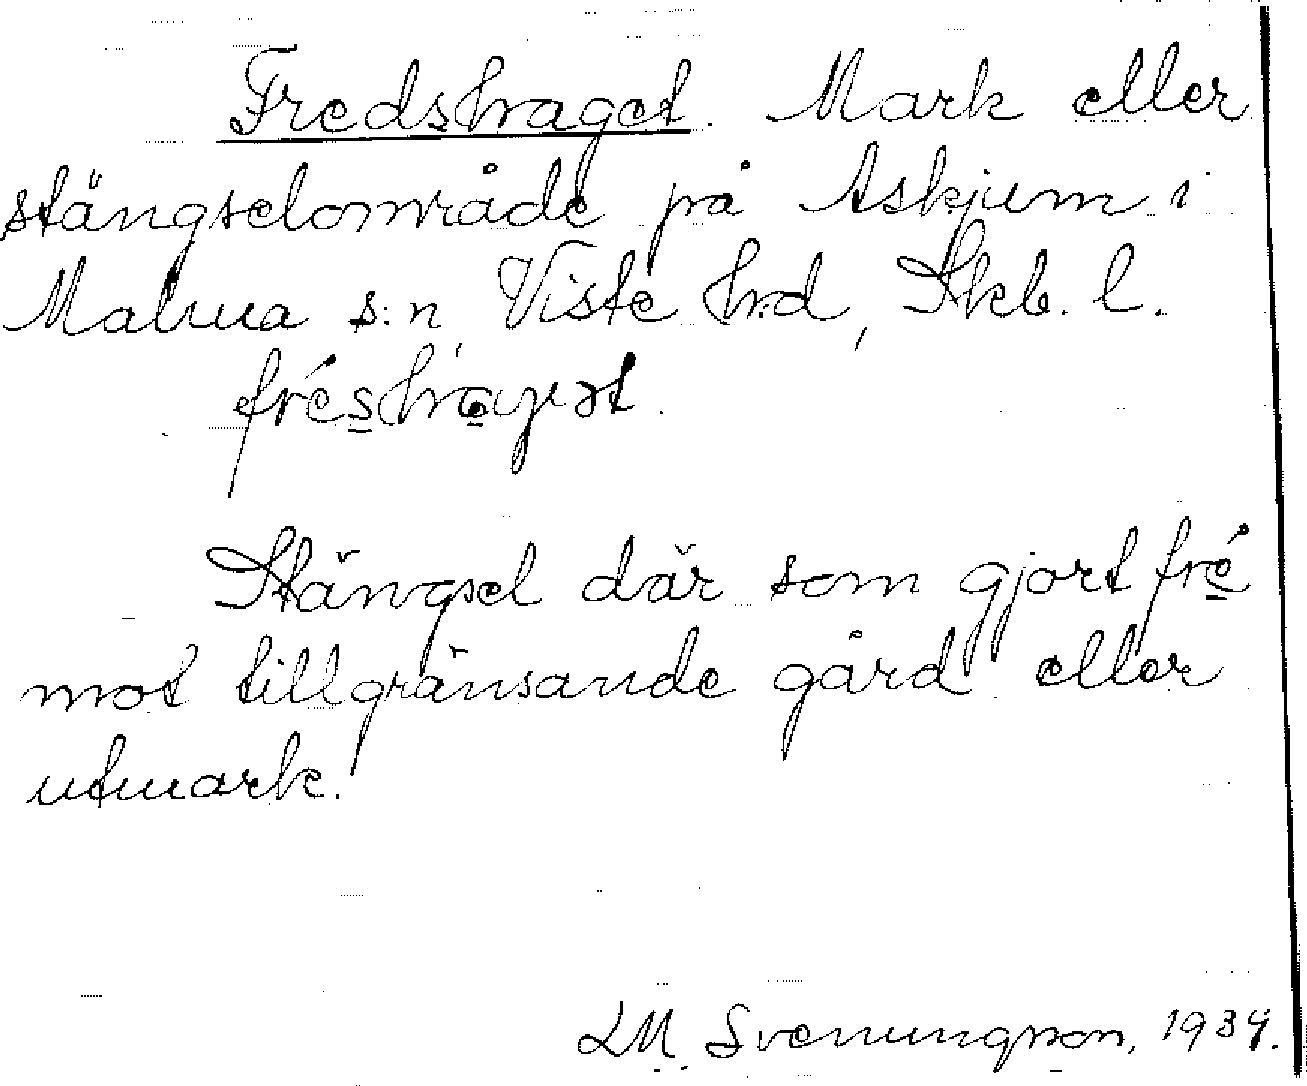 Fredshaget. Mark eller
stängselområde på Askjum i
Malma s:n, Viste hrd, Skb. l.
fréshaget.
Stängsel där som gjort fré
mot tillgränsande gård eller
utmark.
LM. Svenungsson, 1934.